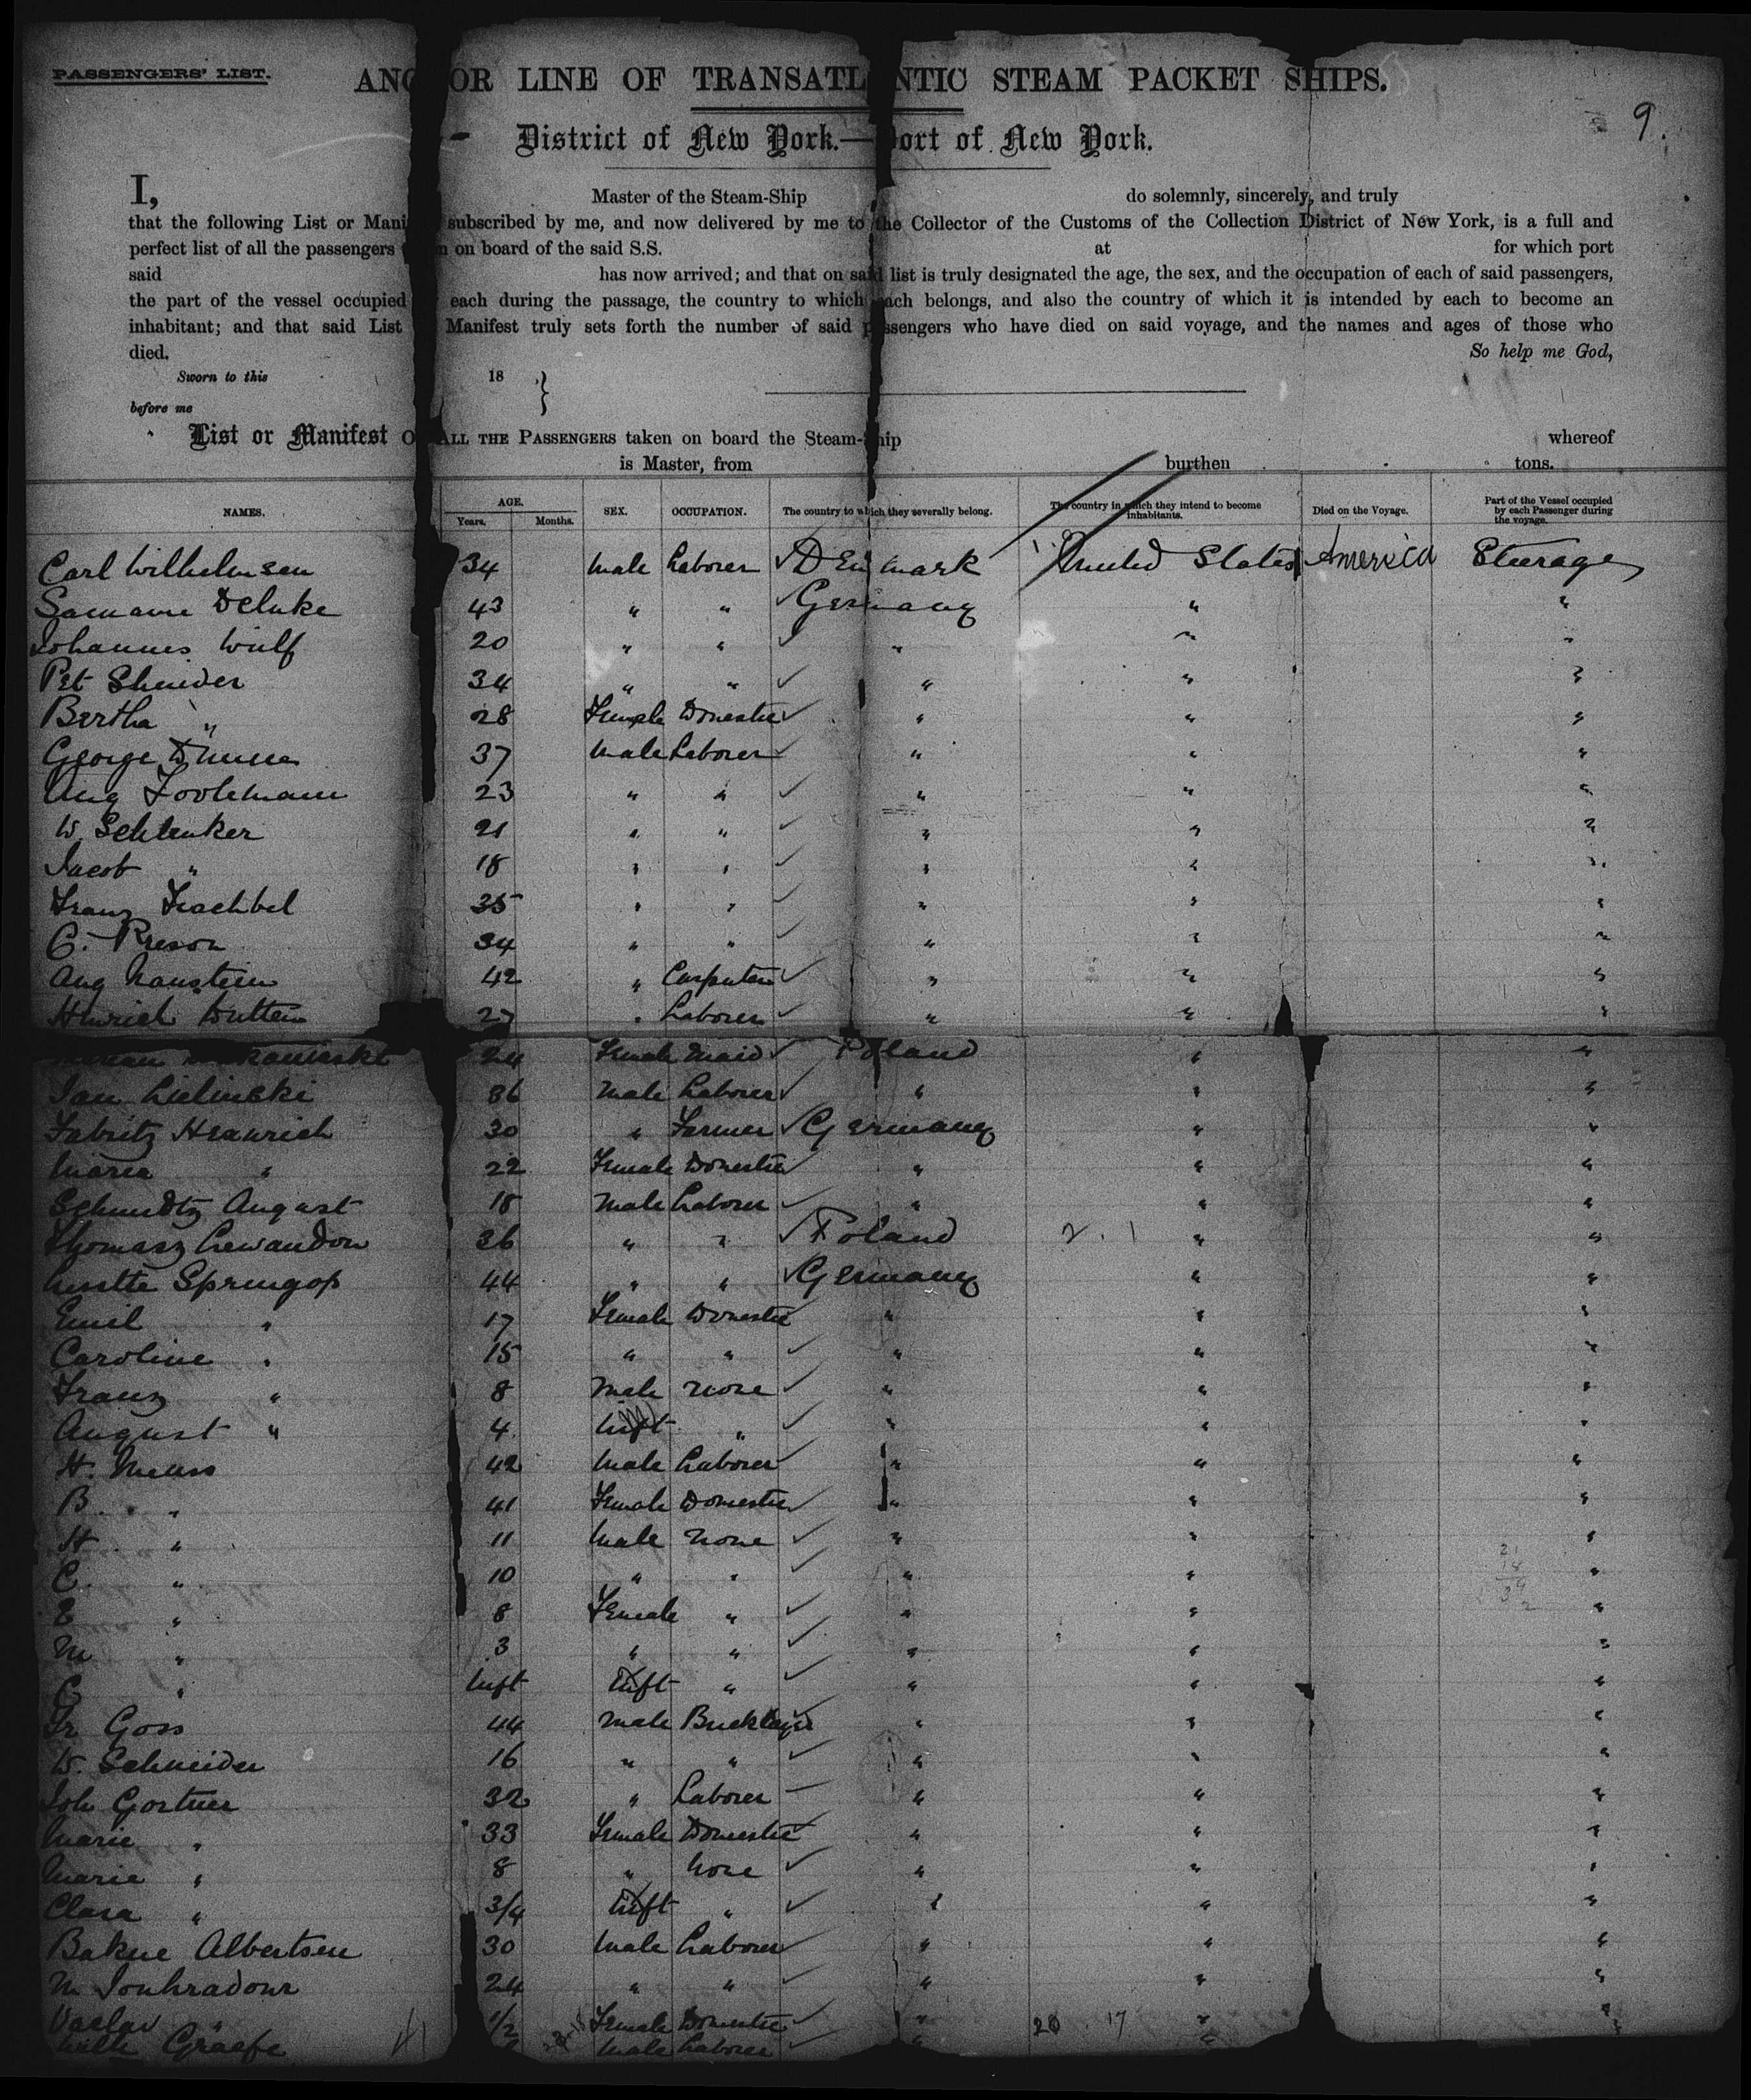 PASSENGERS' LIST.
ANCHOR LINE OF TRANSATLANTIC STEAM PACKET SHIPS.
9.
District of New York.—Port of New York.
I, Master of the Steam-Ship do solemnly, sincerely, and truly
that the following List or Mani subscribed by me, and now delivered by me to the Collector of the Customs of the Collection District of New York, is a full and
perfect list of all the passengers on board of the said S.S. at for which port
said has now arrived; and that on said list is truly designated the age, the sex, and the occupation of each of said passengers,
the part of the vessel occupied each during the passage, the country to which each belongs, and also the country of which it is intended by each to become an
inhabitant; and that said List Manifest truly sets forth the number of said passengers who have died on said voyage, and the names and ages of those who
died. So help me God,
Sworn to this 18
before me
List or Manifest OF ALL THE PASSENGERS taken on board the Steam-Ship whereof
is Master, from burthen tons.
NAMES. AGE. Years. Months. SEX. OCCUPATION. The country to which they severally belong. The country in which they intend to become inhabitants. Died on the Voyage. Part of the Vessel occupied by each Passenger during the voyage.
Carl Wilhelmsen 34 Male Laborer ✓ Denmark United States America Steerage
43 " " ✓ Germany " "
Johannes Wulf 20 " " ✓ " " "
Pet Shnider 34 " " ✓ " " "
Bertha " 28 Female Domestic ✓ " " "
George 37 Male Laborer ✓ " " "
Aug 23 " " ✓ " " "
W. Schlenker 21 " " ✓ " " "
Jacob " 18 " " ✓ " " "
Franz 35 " " ✓ " " "
C. 34 " " ✓ " " "
Aug 42 " Carpenter ✓ " " "
Hinrich 27 " Laborer ✓ " " "
24 Female Maid ✓ Poland " "
Jan Lielinski 36 Male Laborer ✓ " " "
Fabritz Heinrich 30 " Farmer ✓ Germany " "
Maria " 22 Female Domestic ✓ " " "
Schmidtz August 18 Male Laborer ✓ " " "
Thomasz Lewandow 36 " " ✓ Poland 2. 1 " "
Springop 44 " " ✓ Germany " "
Emil " 17 Female Domestic ✓ " " "
Caroline " 15 " " ✓ " " "
Franz " 8 Male None ✓ " " "
August " 4 Inft " ✓ " " "
H. Meuss 42 Male Laborer ✓ " " "
B. " 41 Female Domestic ✓ " " "
H. " 11 Male None ✓ " " "
C. " 10 " " ✓ " " "
E " 8 Female " ✓ " " "
M " 3 " " ✓ " " "
C " Inft Inft " ✓ " " "
Fr Goss 44 Male Bricklayer ✓ " " "
W. Schneider 16 " " ✓ " " "
Joh Gortner 32 " Laborer — " " "
Marie " 33 Female Domestic ✓ " " "
Marie " 8 " None ✓ " " "
Clara " 3/4 Inft " ✓ " " "
Bakne Albertsen 30 Male Laborer ✓ " " "
M 24 " " ✓ " " "
Vaclav " 1/2 Female Domestic ✓ " 20 . 17 " "
Wilh Graefe Male Laborer ✓ " " "